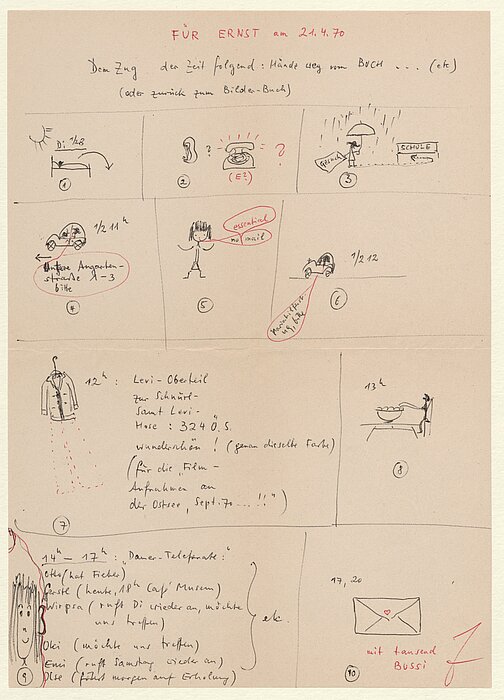 FÜR ERNST am 21.4.70
Dem Zug der Zeit folgend: Hände weg vom BUCH ... (etc)
(oder zurück zum Bilder-Buch)
Di 1/2 8
1
?
?
(E?)
2
SCHULE
3
1/2 11 h
Untere Augarten-
straße 1-3
bitte
4
essential
no mail
5
1/2 12
bitte
6
12 h : Levi-Oberteil
zur Schnürl-
samt Levi-
Hose : 324 Ö.S.
wunderschön ! (genau dieselbe Farbe)
(für die „Film-
Aufnahmen an
der Ostsee, Sept. 70 ... !!")
7
13 h
8
14 h – 17 h : „Dauer-Telefonate :"
Otto (hat Fieber)
Gerstl (heute, 18 h Café Museum)
(ruft Di wieder an, möchte
uns treffen)
Oki (möchte uns treffen)
Emi (ruft Samstag wieder an)
Ilse (fährt morgen auf Erholung)
etc.
9
17, 20
mit tausend
BUSSI
10